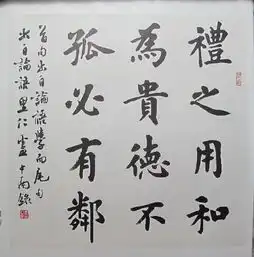 禮之用和
為貴德不
孤必有鄰
首句出自論語學而尾句
出自論語里仁